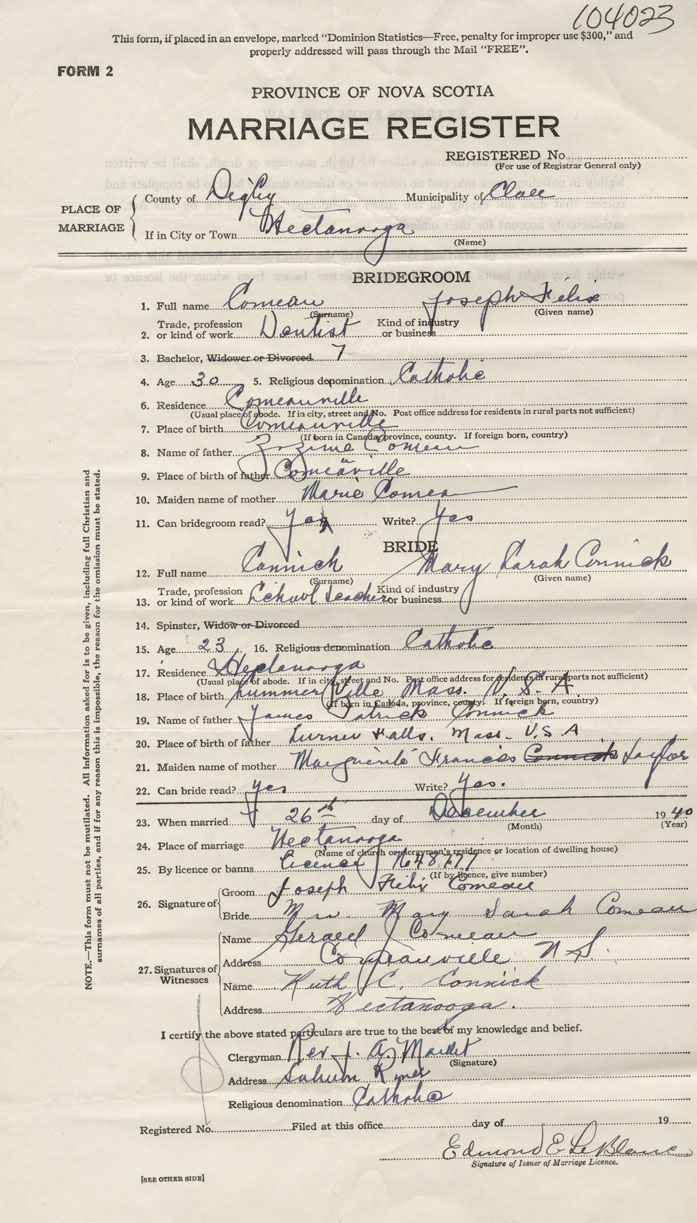 104023
This form, if placed in an envelope, marked "Dominion Statistics—Free, penalty for improper use $300," and
properly addressed will pass through the Mail "FREE".
FORM 2
PROVINCE OF NOVA SCOTIA
MARRIAGE REGISTER
REGISTERED No.
(For use of Registrar General only)
PLACE OF MARRIAGE
County of Digby Municipality of Clare
If in City or Town Hectanooga
(Name)
BRIDEGROOM
1. Full name Comeau Joseph Felix
(Surname) (Given name)
2. Trade, profession or kind of work Dentist Kind of industry or business
3. Bachelor, Widower or Divorced
4. Age 30 5. Religious denomination Catholic
6. Residence Comeauville
(Usual place of abode. If in city, street and No. Post office address for residents in rural parts not sufficient)
7. Place of birth Comeauville
(If born in Canada, province, county. If foreign born, country)
8. Name of father Comeau
9. Place of birth of father Comeauville
10. Maiden name of mother Marie Comeau
11. Can bridegroom read? Yes Write? Yes
BRIDE
12. Full name Connick Mary Sarah Connick
(Surname) (Given name)
13. Trade, profession or kind of work School Teacher Kind of industry or business
14. Spinster, Widow or Divorced
15. Age 23 16. Religious denomination Catholic
17. Residence Hectanooga
(Usual place of abode. If in city, street and No. Post office address for residents in rural parts not sufficient)
18. Place of birth Summerville Mass. U.S.A
(If born in Canada, province, county. If foreign born, country)
19. Name of father James Patrick Connick
20. Place of birth of father Turner Falls. Mass. U.S.A
21. Maiden name of mother Marguerite Frances Connick Taylor
22. Can bride read? yes Write? Yes.
23. When married 26th day of December 1940
(Month) (Year)
24. Place of marriage Hectanooga
(Name of church or clergyman's residence or location of dwelling house)
25. By licence or banns Licence
(If by licence, give number)
26. Signature of
Groom Joseph Felix Comeau
Bride Mrs Mary Sarah Comeau
27. Signatures of Witnesses
Name Gerald J Comeau
Address Comeauville N.S.
Name Ruth C. Connick
Address Hectanooga.
I certify the above stated particulars are true to the best of my knowledge and belief.
Clergyman Rev. J. A.
(Signature)
Address
Religious denomination Catholic
Registered No. Filed at this office day of 19
Edmond E LeBlanc
Signature of Issuer of Marriage Licence.
[SEE OTHER SIDE]
NOTE.—This form must not be mutilated. All information asked for is to be given, including full Christian and
surnames of all parties, and if for any reason this is impossible, the reason for the omission must be stated.